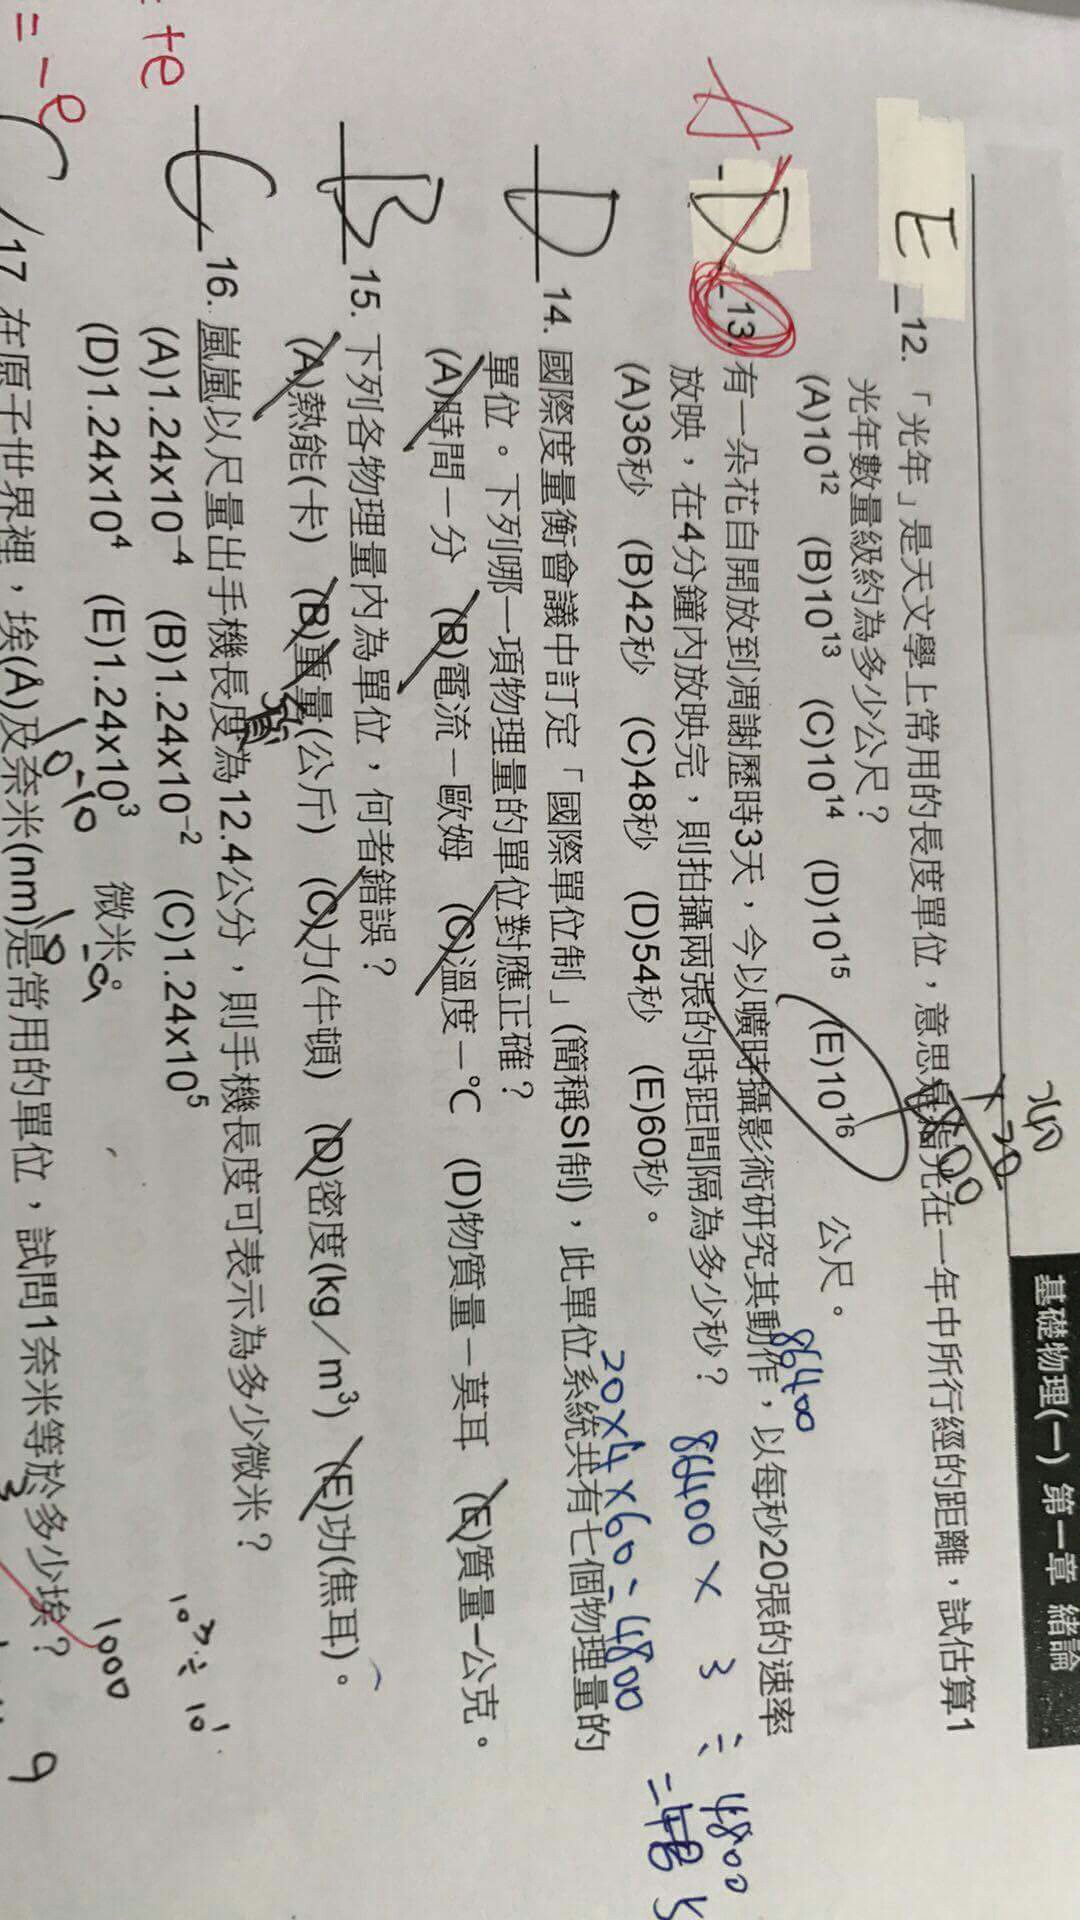 基礎物理(一) 第一章 緒論
240
×20
4800
E 12.「光年」是天文學上常用的長度單位，意思是指光在一年中所行經的距離，試估算1
光年數量級約為多少公尺？
(A)10¹² (B)10¹³ (C)10¹⁴ (D)10¹⁵ (E)10¹⁶ 公尺。
86400
A D 13. 有一朵花自開放到凋謝歷時3天，今以曠時攝影術研究其動作，以每秒20張的速率
放映，在4分鐘內放映完，則拍攝兩張的時距間隔為多少秒？ 86400 × 3 ÷ 4800
(A)36秒 (B)42秒 (C)48秒 (D)54秒 (E)60秒。
20×4×60=4800
D 14. 國際度量衡會議中訂定「國際單位制」(簡稱SI制)，此單位系統共有七個物理量的
單位。下列哪一項物理量的單位對應正確？
(A)時間－分 (B)電流－歐姆 (C)溫度－℃ (D)物質量－莫耳 (E)質量－公克。
B 15. 下列各物理量內為單位，何者錯誤？
(A)熱能(卡) (B)重量(公斤) (C)力(牛頓) (D)密度(kg／m³) (E)功(焦耳)。
質
C 16. 嵐嵐以尺量出手機長度為12.4公分，則手機長度可表示為多少微米？
(A)1.24x10⁻⁴ (B)1.24x10⁻² (C)1.24x10⁵
(D)1.24x10⁴ (E)1.24x10³ 微米。
10³÷10¹
1000
+e
=-e
C 17. 在原子世界裡，埃(Å)及奈米(nm)是常用的單位，試問1奈米等於多少埃？
10⁻¹⁰
9